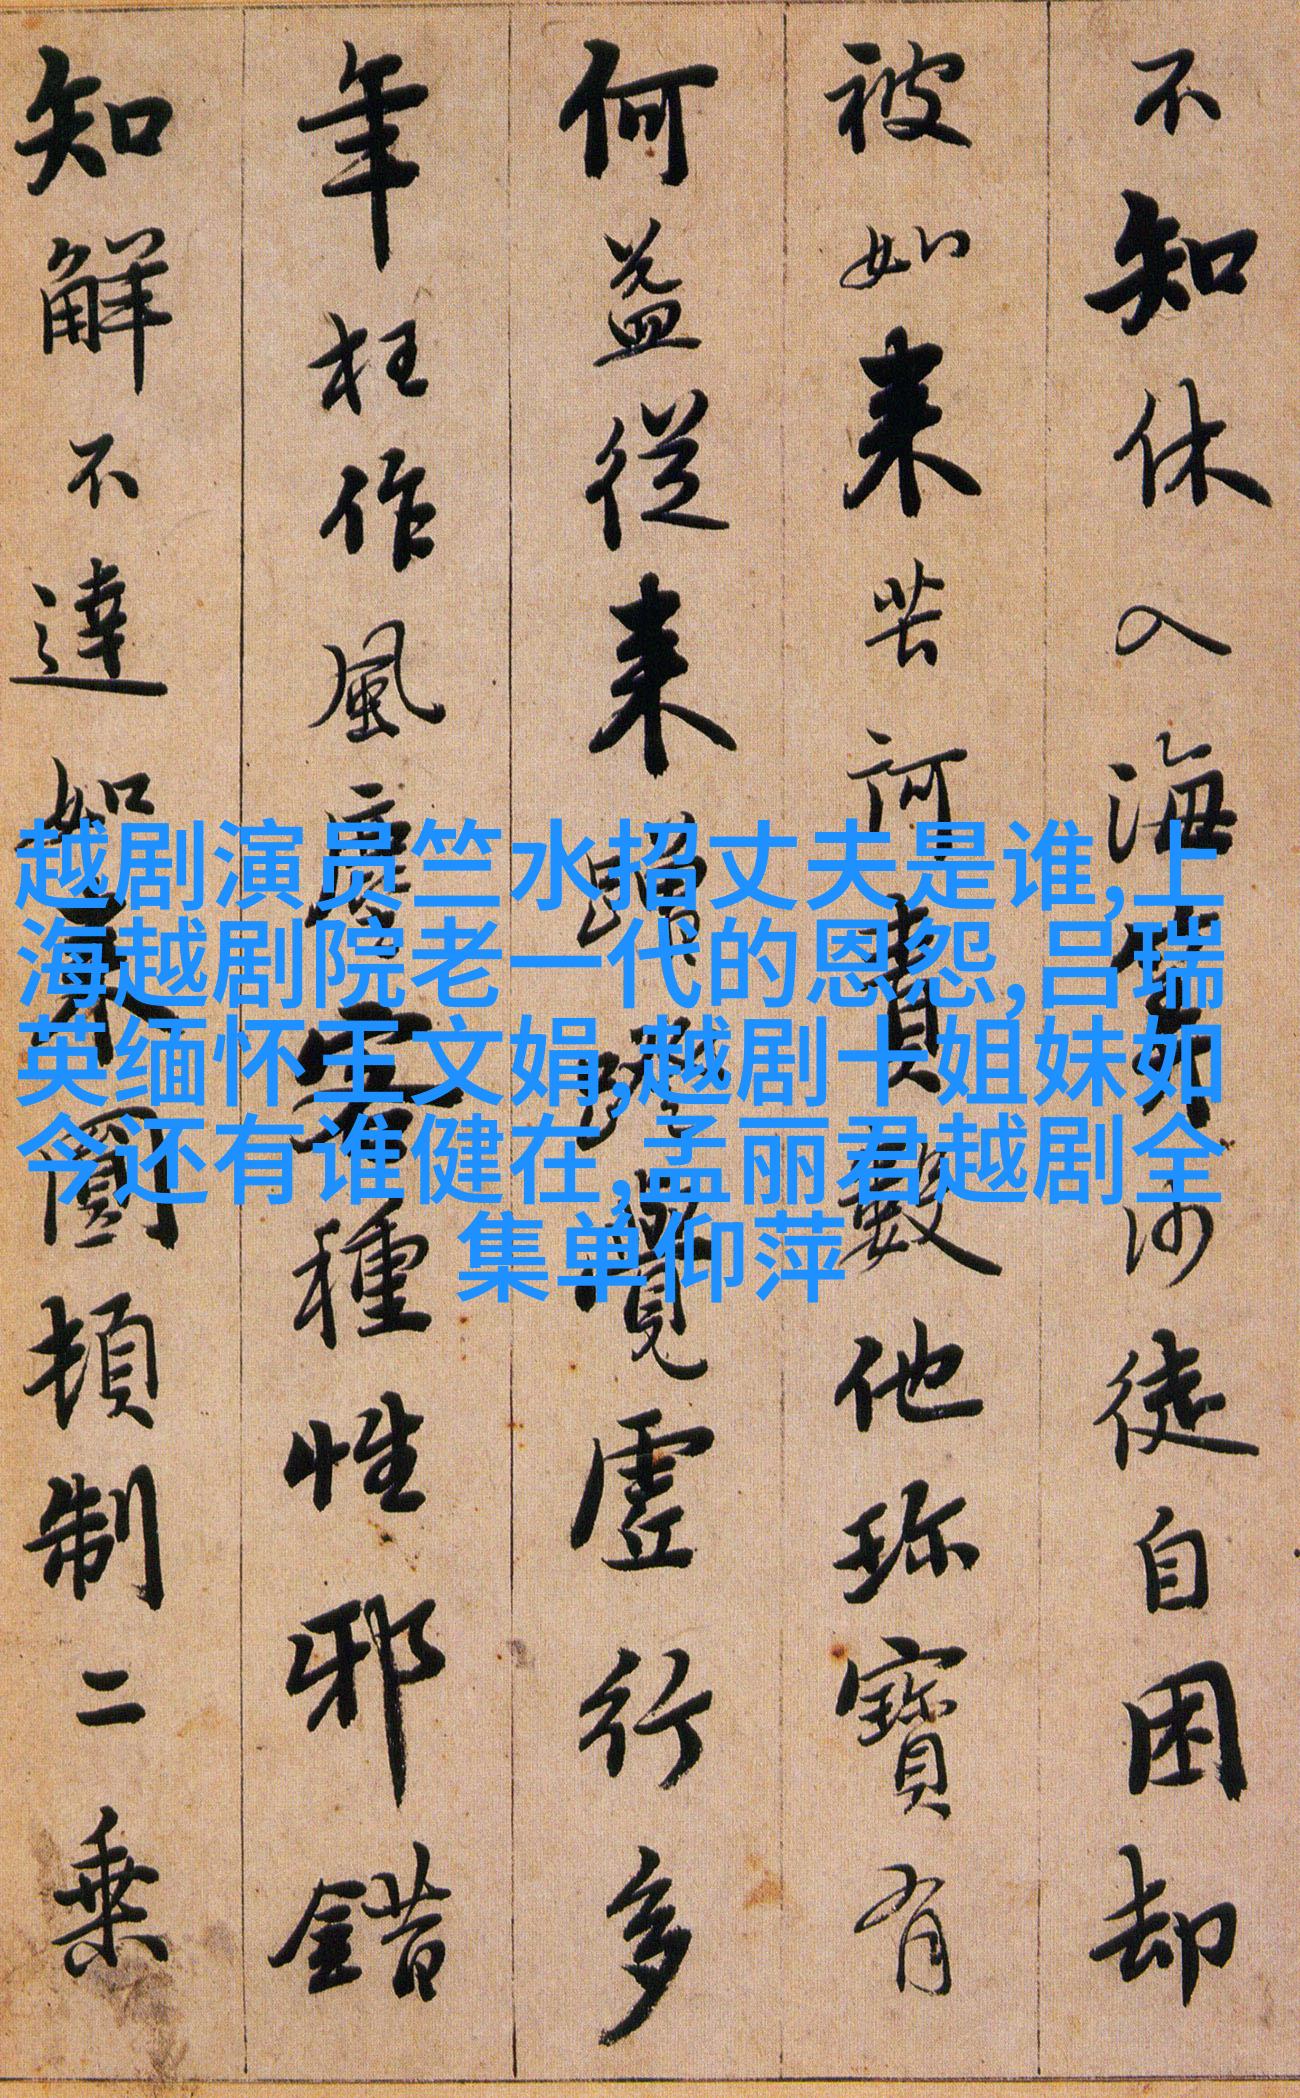 不知休入海算沙徒自困却
被如来苦訶責數他珎寶有
何益從来蹭蹬覺虛行多
年枉作風塵客種性邪錯
知解不達如来圓頓制二乗
越剧演员竺水招丈夫是谁,上
海越剧院老一代的恩怨,吕瑞
英缅怀王文娟,越剧十姐妹如
今还有谁健在,孟丽君越剧全
集单仰萍